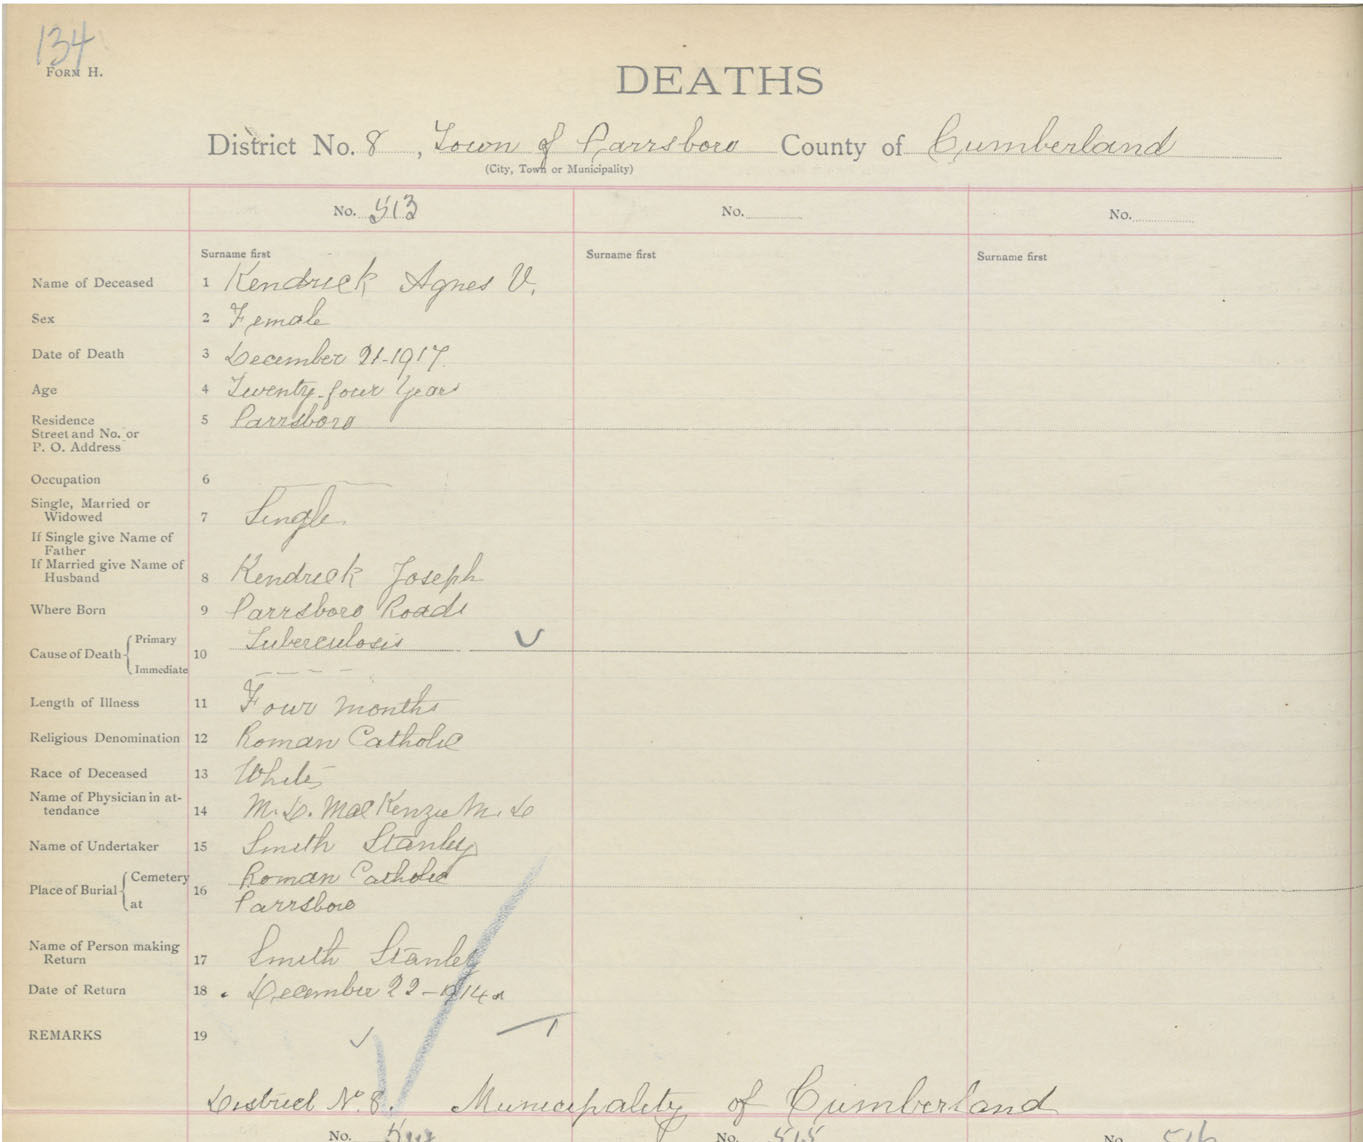 134
FORM H.
DEATHS
District No. 8, Town of Parrsboro County of Cumberland
(City, Town or Municipality)
No. 513 No. No.
Surname first Surname first Surname first
Name of Deceased 1 Kendrick Agnes V.
Sex 2 Female
Date of Death 3 December 21-1917
Age 4 Twenty-four Years
Residence 5 Parrsboro
Street and No. or
P. O. Address
Occupation 6
Single, Married or
Widowed 7 Single
If Single give Name of
Father
If Married give Name of
Husband 8 Kendrick Joseph
Where Born 9 Parrsboro Roads
Cause of Death { Primary 10 Tuberculosis
Immediate
Length of Illness 11 Four months
Religious Denomination 12 Roman Catholic
Race of Deceased 13 White
Name of Physician in at-
tendance 14 M. D. MacKenzie M. D
Name of Undertaker 15 Smith Stanley
Place of Burial { Cemetery 16 Roman Catholic
at Parrsboro
Name of Person making
Return 17 Smith Stanley
Date of Return 18 December 22-
REMARKS 19
District No. 8. Municipality of Cumberland
No. No. 515 No. 516